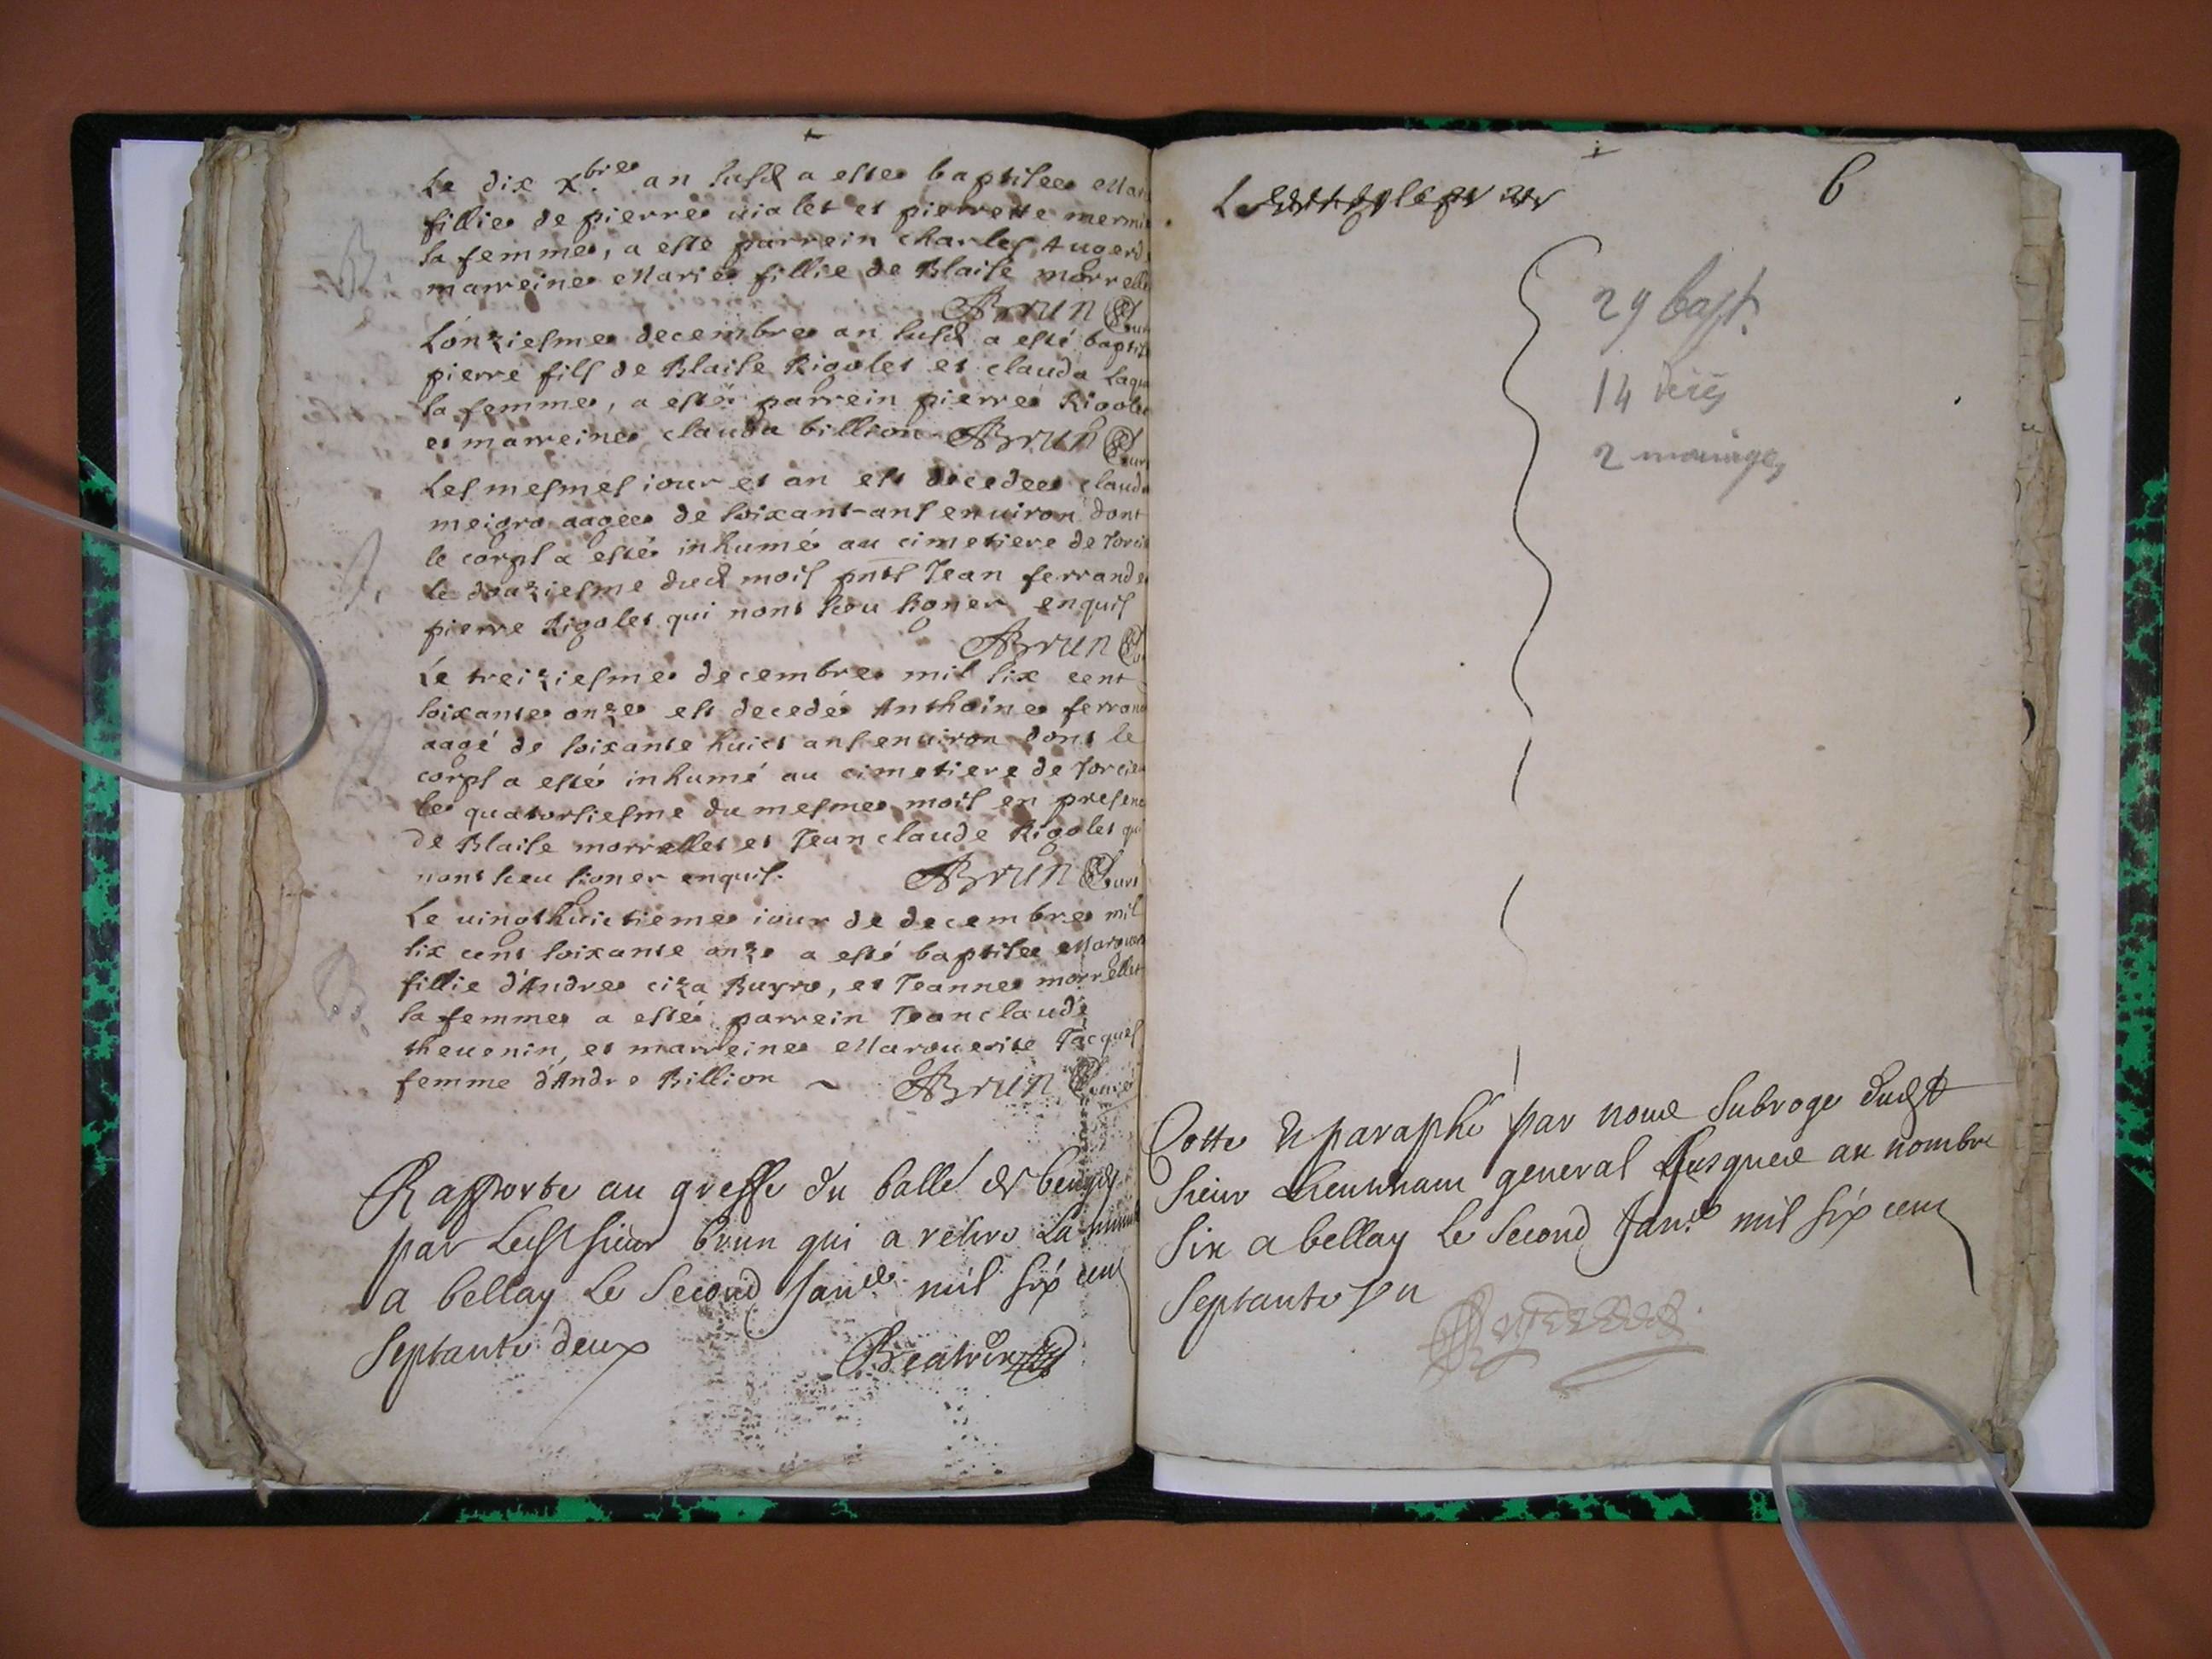 Le dix Xbre an susd a este baptisee Mar
fillie de pierre vialet et pierrette mermi
sa femme, a este parrein charles Augerd
marreine Marie fillie de Blaise morrelle
ABrun Cur
L'onziesme decembre an susd a esté baptis
pierre fils de Blaise Rigolet et clauda Laqu
sa femme, a esté parrein pierre Rigolet
et marreine clauda billion ABrun Cur
Les mesmes iour et an est decedee clauda
meigro aagee de soixant-ans environ dont
le corps a esté inhumé au cimetiere de Torci
le douziesme dud mois pnts Jean ferrand e
pierre Rigolet qui nont sceu signer enquis
ABrun C
Le treiziesme decembre mil six cent
soixante onze est decedé Anthoine ferran
aagé de soixante huict ans environ dont le
corps a esté inhumé au cimetiere de Torcie
le quatorsiesme du mesme mois en presenc
de Blaise morrellet et Jean claude Rigolet qui
nont sceu signer enquis. ABrun Curé
Le vingthuictieme iour de decembre mil
six cent soixante onze a esté baptisee Marguer
fillie d'Andre ciza Buyro, et Jeanne morrellet
sa femme a esté parrein Jeanclaude
thevenin, et marreine Marguerite Jacques
femme d'Andre Billion ~ ABrun Curé
Rapporte au greffe du balle de beugey
par Ledst sieur brun qui a retire La minut
a bellay le second Janve mil six cent
septante deux Beatrix
6
29 bapt.
14 décès
2 mariages
Cotte et paraphé par nous subroge dudst
sieur Lieutenant general Jusques au nombre
six a bellay le second Janve mil six cent
septante un